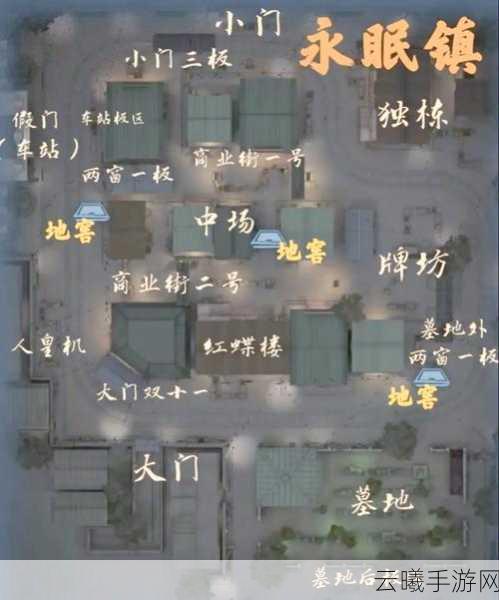 小门
永眠镇
小门三板
独栋
假门
车站板区
（车站）
商业街一号
两窗一板
中场
地窖
地窖
牌坊
商业街二号
墓地外
两窗一板
人皇机
红蝶楼
地窖
大门双十一
大门
墓地
墓地后板
云曦手游网